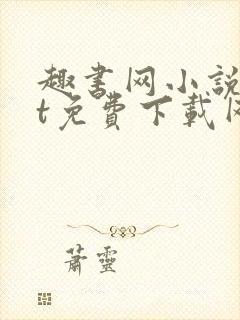 趣書网小說
t免費下載
蕭靈